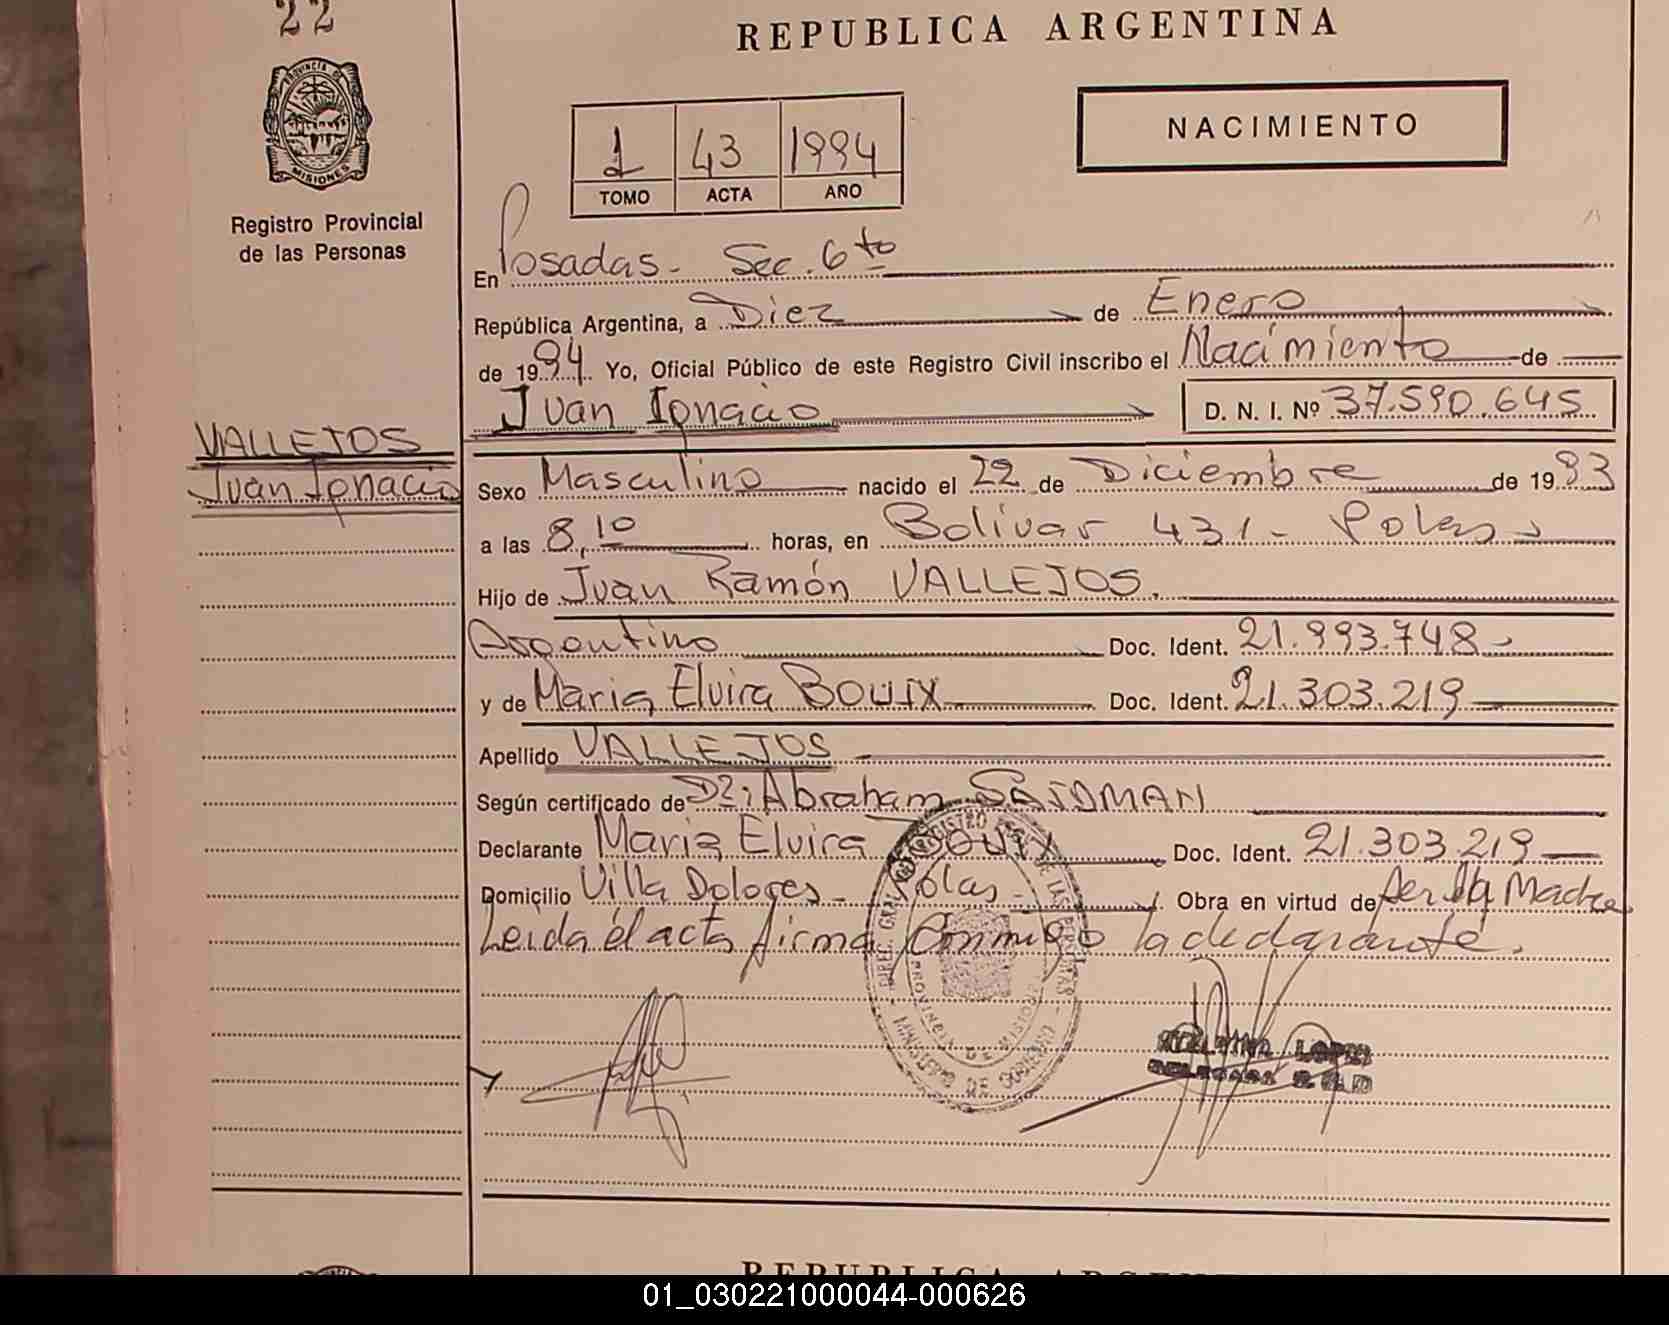 22
REPUBLICA ARGENTINA
PROVINCIA DE
MISIONES
Registro Provincial
de las Personas
1 43 1994
TOMO ACTA AÑO
NACIMIENTO
En Posadas - Sec. 6to
República Argentina, a Diez de Enero
de 1994 Yo, Oficial Público de este Registro Civil inscribo el Nacimiento de
Juan Ignacio D. N. I. Nº 37.590.645
VALLEJOS
Juan Ignacio
Sexo Masculino nacido el 22 de Diciembre de 1993
a las 8,10 horas, en Bolívar 431 - Pdas
Hijo de Juan Ramón VALLEJOS.
Argentino Doc. Ident. 21.993.748
y de Maria Elvira BOUIX Doc. Ident. 21.303.219
Apellido VALLEJOS
Según certificado de Dr: Abraham
Declarante Maria Elvira BOUIX Doc. Ident. 21.303.219
Domicilio Villa Dolores - Pdas - Obra en virtud de Ser la Madre
Leida el acta firma conmigo la declarante.
DIREC. GRAL. REGISTRO DE LAS PERSONAS
PROVINCIA DE MISIONES
MINISTERIO DE GOBIERNO
LOPEZ
REPUBLICA ARGENTINA
01_030221000044-000626